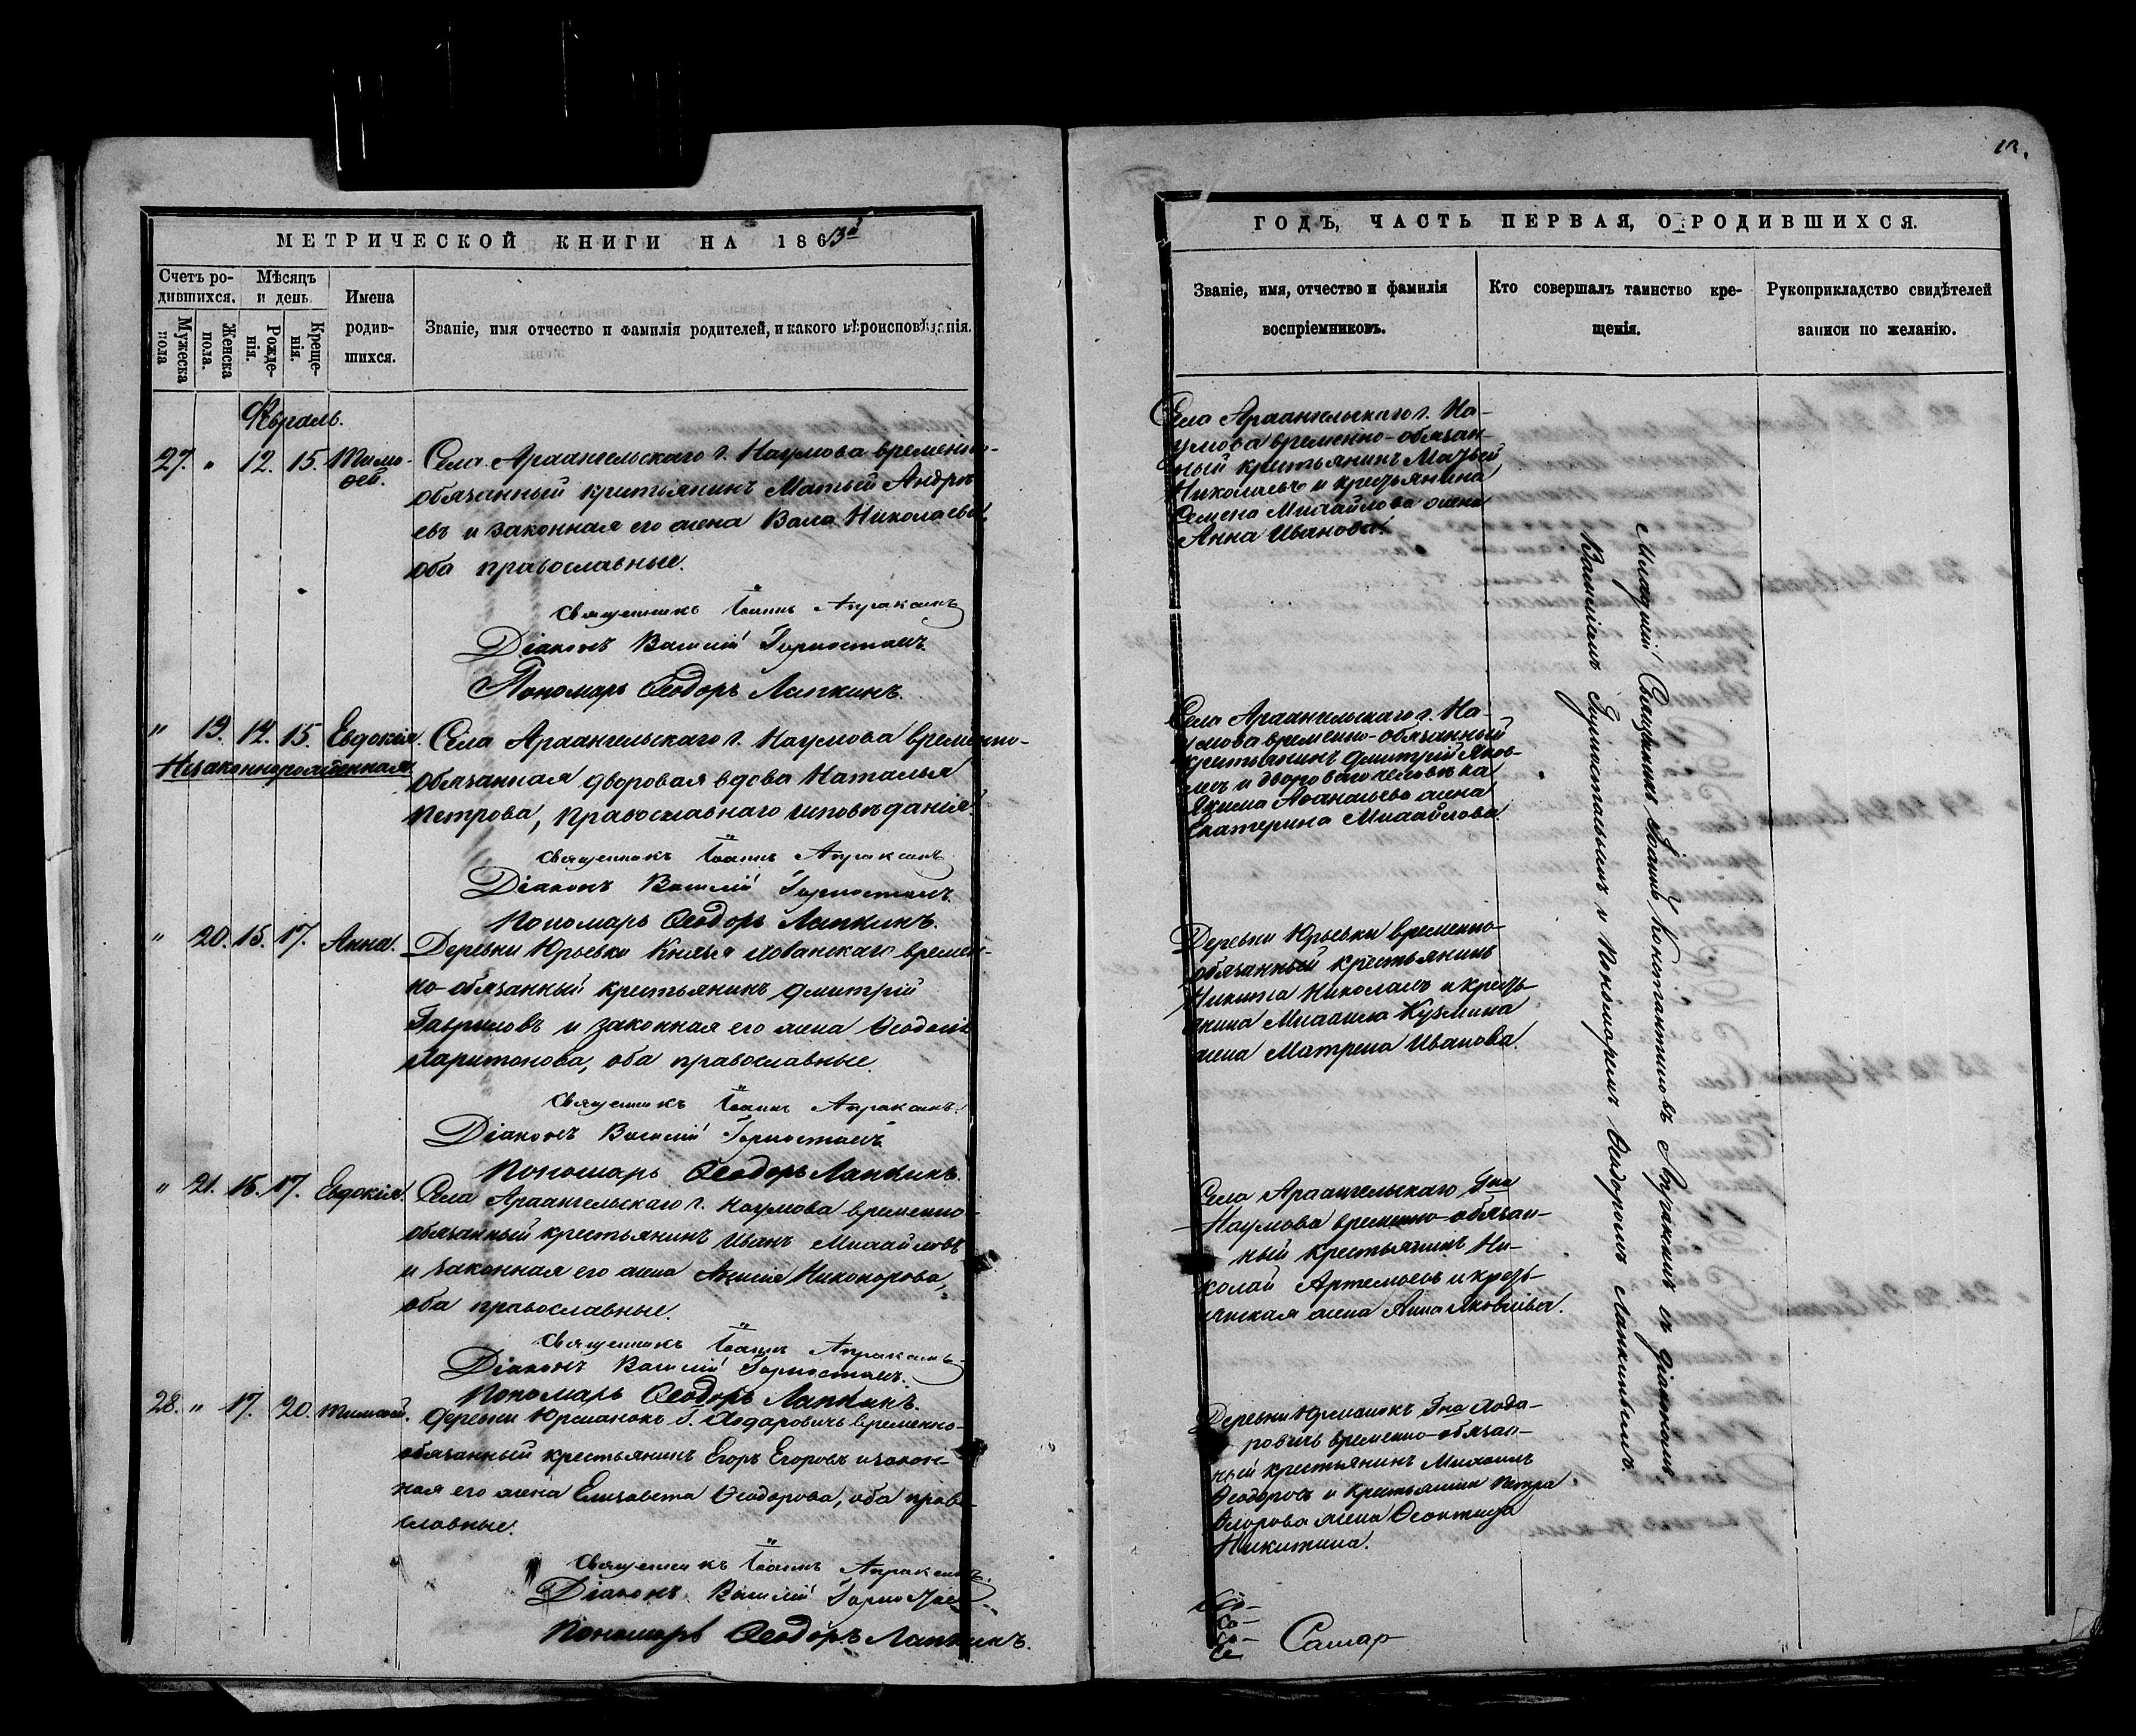 МЕТРИЧЕСКОЙ КНИГИ НА 1863й
Счетъ ро-
дившихся.
Мѣсяцъ
и день.
Мужеска
пола
Женска
пола.
Рожде-
нія.
Креще-
нія.
Имена
родив-
шихся.
Званіе, имя отчество и фамилія родителей, и какого вѣроисповѣданія.
Февраль.
27. " 12. 15. Тимо-
ѳей.
Села Архангельскаго г. Наумова временно-
обязанный крестьянинъ Матѳей Андре-
евъ и законная его жена Васса Николаева,
оба православные.
Священникъ Іоаннъ Апраксинъ
Діаконъ Василій Горностаевъ.
Пономарь Ѳеодоръ Лапкинъ.
" 19. 12. 15. Евдокія.
Незаконнорожденная.
Села Архангельскаго г. Наумова временно-
обязанная дворовая вдова Наталья
Петрова, православнаго исповѣданія.
Священникъ Іоаннъ Апраксинъ
Діаконъ Василій Горностаевъ.
Пономарь Ѳеодоръ Лапкинъ.
" 20. 15. 17. Анна.
Деревни Юрьевки Князя Хованскаго времен-
но-обязанный крестьянинъ Дмитрій
Гавриловъ и законная его жена Ѳеодосія
Харитонова, оба православные.
Священникъ Іоаннъ Апраксинъ.
Діаконъ Василій Горностаевъ
Пономарь Ѳеодоръ Лапкинъ.
" 21. 16. 17. Евдокія.
Села Архангельскаго г. Наумова временно-
обязанный крестьянинъ Иванъ Михайловъ
и законная его жена Никонорова,
оба православные.
Священникъ Іоаннъ Апраксинъ
Діаконъ Василій Горностаевъ.
Пономарь Ѳеодоръ Лапкинъ.
28. " 17. 20. Тимоѳей.
Деревни г. Ходаровичъ временно-
обязанный крестьянинъ Егоръ Егоровъ и закон-
ная его жена Елизавета Ѳеодорова, оба право-
славные.
Священникъ Іоаннъ Апраксинъ.
Діаконъ Василій
Пономарь Ѳеодоръ Лапкинъ.
ГОДЪ, ЧАСТЬ ПЕРВАЯ, О РОДИВШИХСЯ.
Званіе, имя, отчество и фамилія
воспріемниковъ.
Кто совершалъ таинство кре-
щенія.
Рукоприкладство свидѣтелей
записи по желанію.
Села Архангельскаго г. На-
умова временно-обязан-
ный крестьянинъ Матѳей
Николаевъ и крестьянина
Семена Михайлова жена
Анна Иванова.
Села Архангельскаго г. На-
умова временно-обязанный
крестьянинъ Дмитрій Яков-
левъ и двороваго человѣка
Якима Аѳанасьева жена
Екатерина Михайлова.
Деревни Юрьевки временно-
обязанный крестьянинъ
Никита Николаевъ и кресть-
янина Михаила Кузмина
жена Матрена Иванова.
Села Архангельскаго Гна
Наумова временно-обязан-
ный крестьянинъ Ни-
колай Артемьевъ и кресть-
янская жена Анна Яковлева.
Деревни Гна Хода-
ровичь временно-обязан-
ный крестьянинъ Михаилъ
Ѳеодоровъ и крестьянина Петра
жена
Никитина.
Младшій Священникъ Іоаннъ Константиновъ Апраксинъ съ Діакономъ
Василіемъ Горностаевымъ и Пономаремъ Ѳеодоромъ Лапкинымъ.
Самар